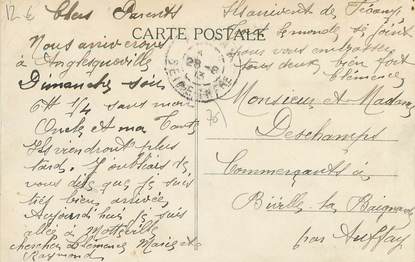 12-6 Chers Parents
Nous arriverons
à Anglesqueville
Dimanche soir
6H 1/4 sans mon
Oncle et ma Tante
Ils viendront plus
tard. J'oubliais de
vous dire que je suis
très bien arrivée
Aujourd'hui je suis
allée à Motteville
chercher Clémence Marie et
Raymond
Ils arrivent de
tout le monde se joint
pour vous embrasser
tous deux bien fort
Clémence
CARTE POSTALE
SEINE-INFRE
76
Monsieur et Madame
Deschamps
Commerçants à
Biville la Baignarde
par Auffay